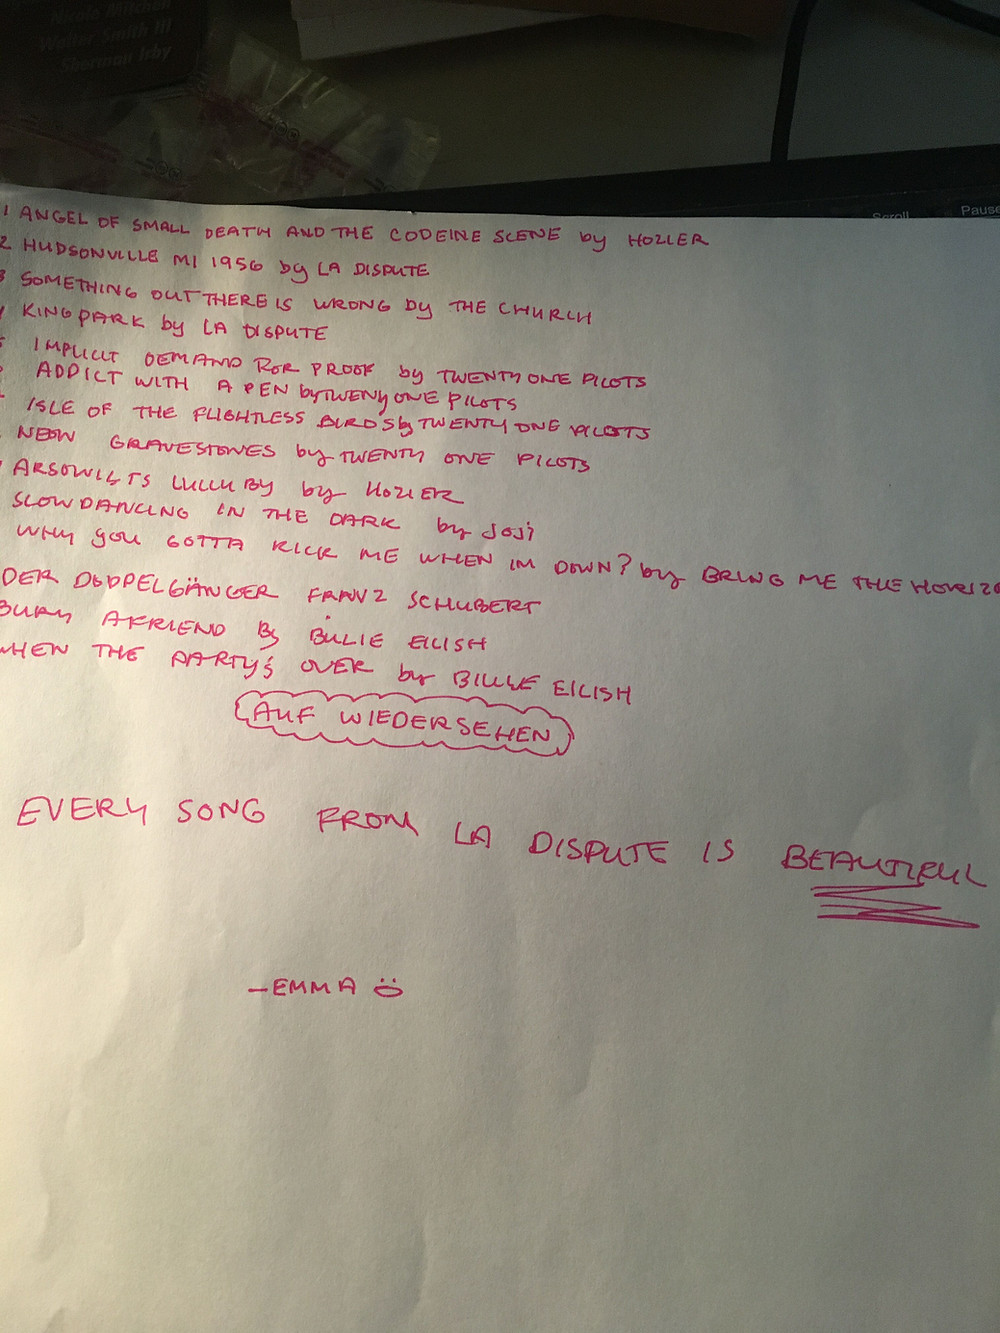 Nicole Mitchell
Walter Smith III
Sherman Irby
Scroll
Pause
1 ANGEL OF SMALL DEATH AND THE CODEINE SCENE by HOZIER
2 HUDSONVILLE MI 1956 by LA DISPUTE
3 SOMETHING OUT THERE IS WRONG by THE CHURCH
KING PARK by LA DISPUTE
IMPLICIT DEMAND FOR PROOF by TWENTY ONE PILOTS
ADDICT WITH A PEN by TWENY ONE PILOTS
ISLE OF THE FLIGHTLESS BIRDS by TWENTY ONE PILOTS
NEON GRAVESTONES by TWENTY ONE PILOTS
ARSONISTS LULLUBY by HOZIER
SLOW DANCING IN THE DARK by JOJI
WHY YOU GOTTA KICK ME WHEN IM DOWN? by BRING ME THE HORIZO
DER DOPPELGÄNGER FRANZ SCHUBERT
BURY A FRIEND By BILLIE EILISH
WHEN THE PARTY'S OVER by BILLIE EILISH
AUF WIEDERSEHEN
EVERY SONG FROM LA DISPUTE IS BEAUTIFUL
-EMMA